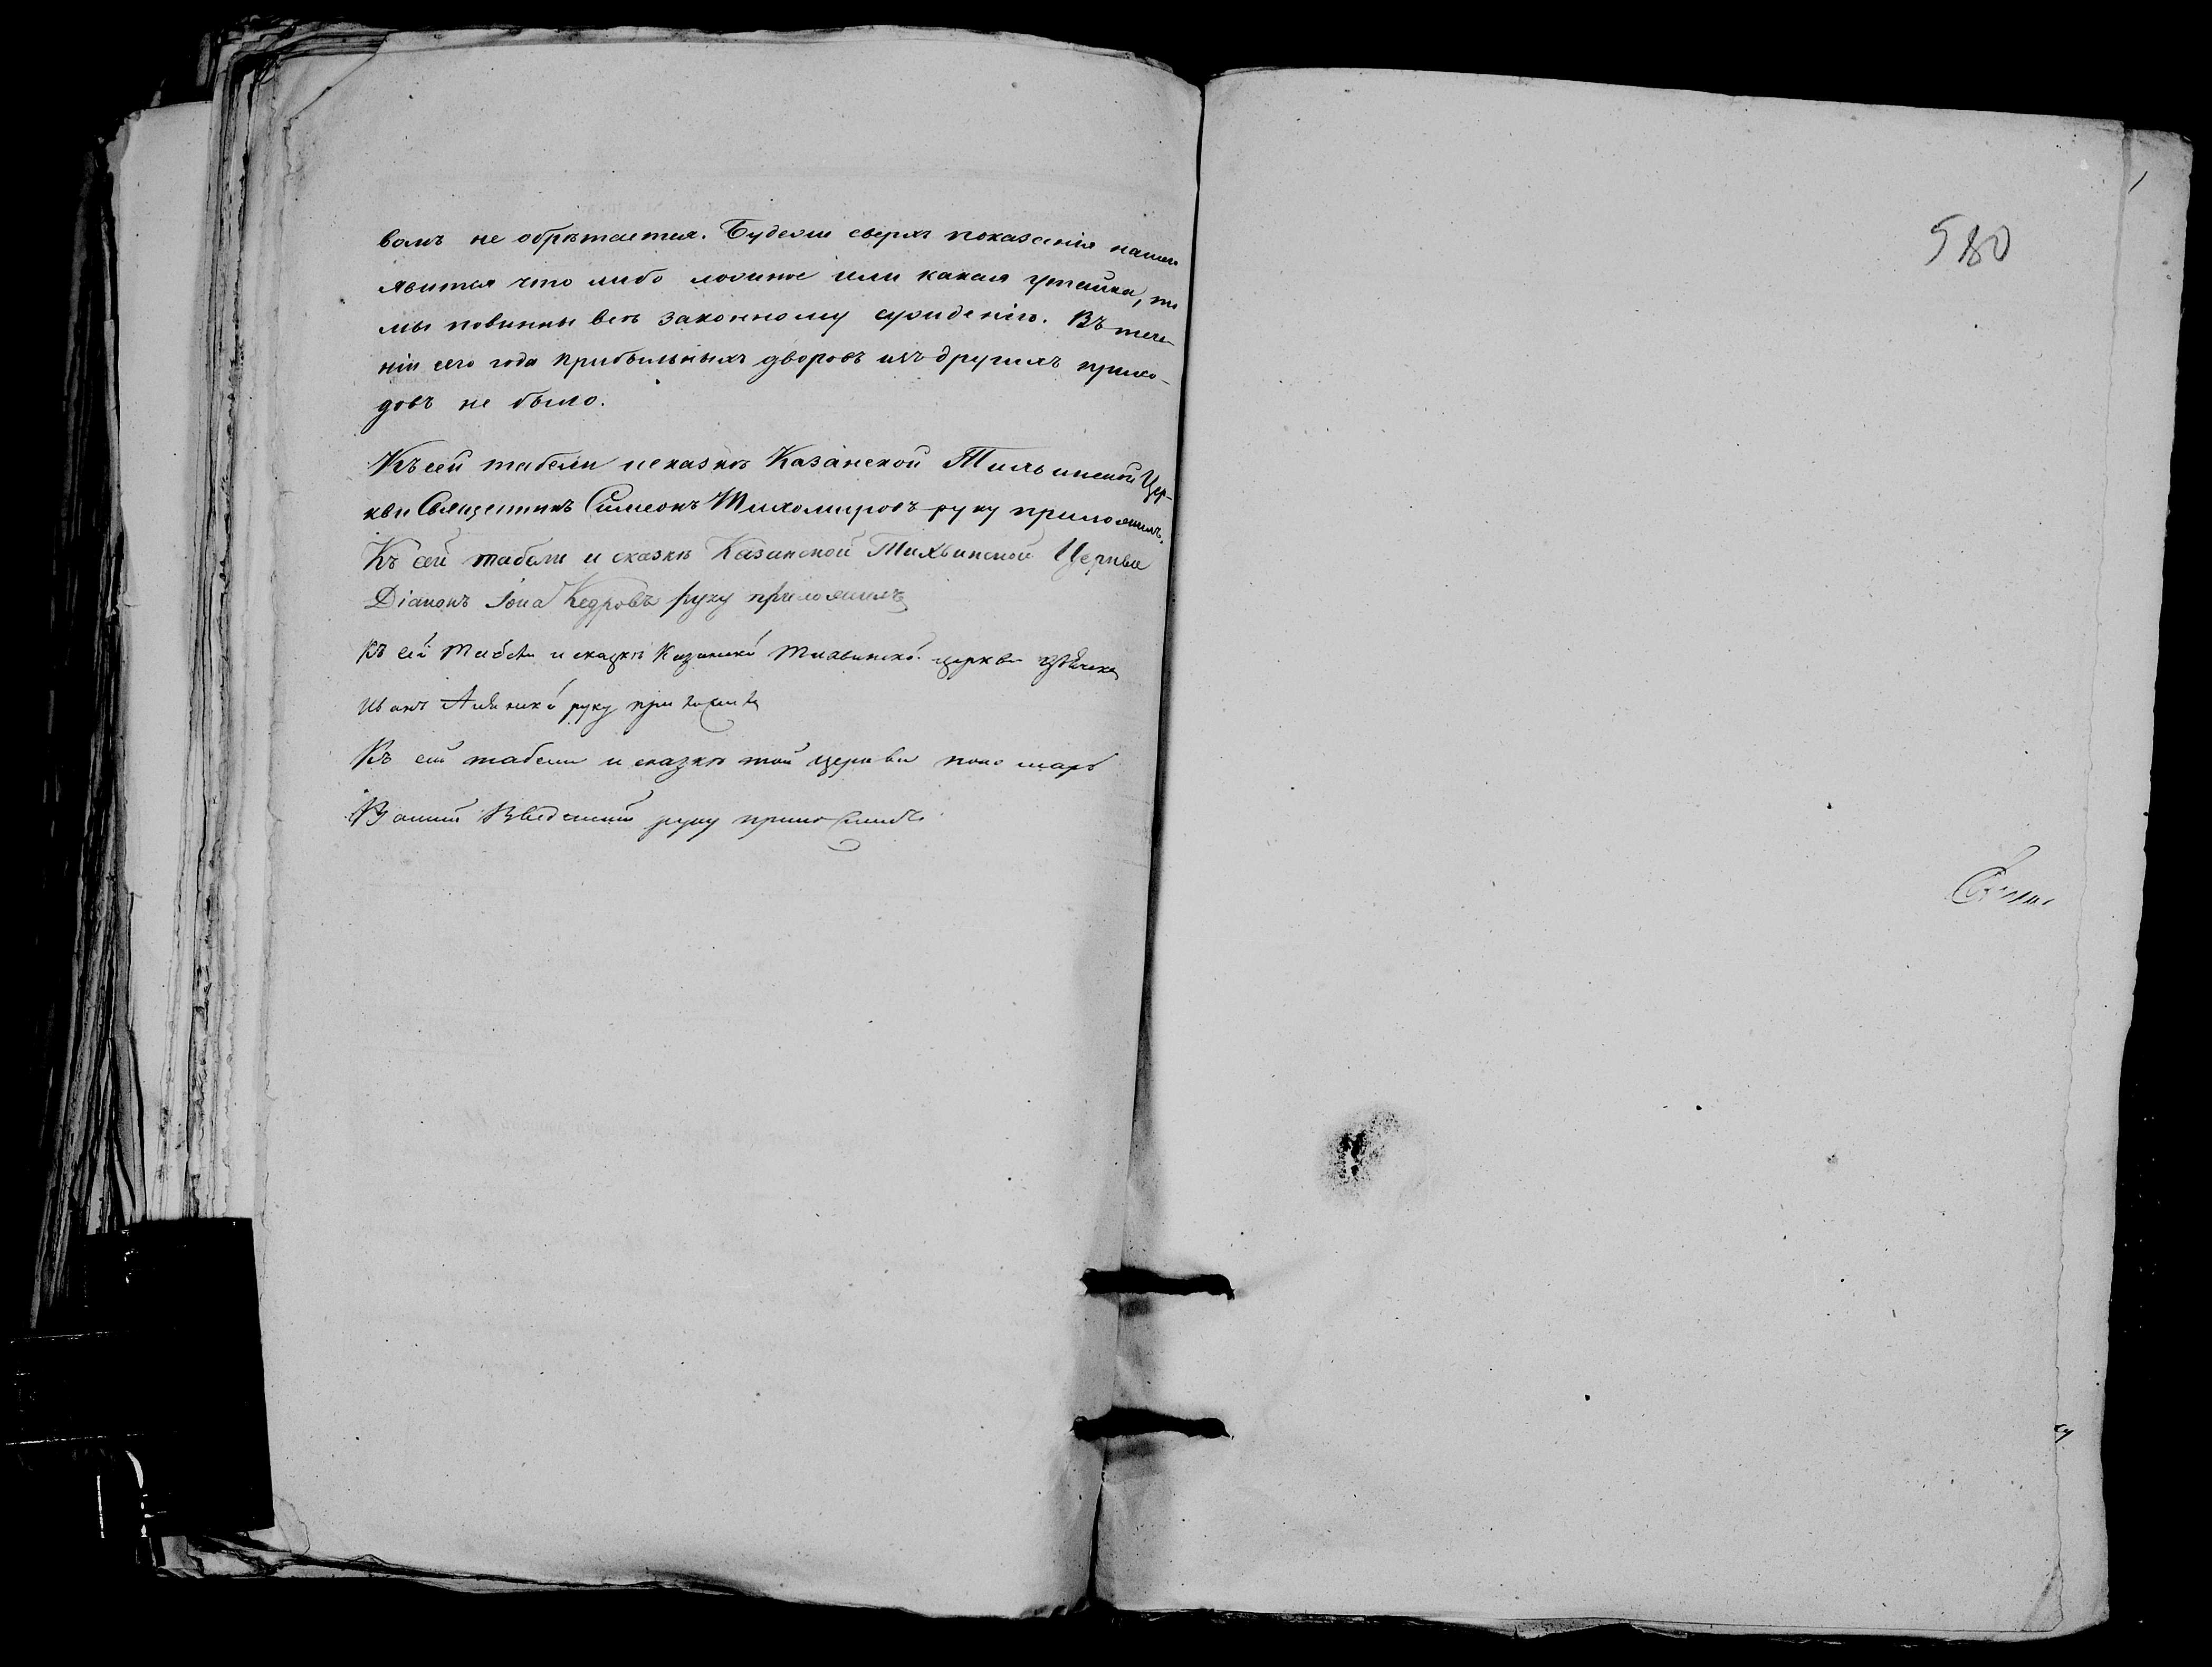 вомъ не обрѣтается. Будеже сверхъ показанія нашего
явится что либо ложное или какая утайка, то
мы повинны веѣ законному сужденію. Въ тече-
ніи сего года прибыльныхъ дворовъ изъ другихъ прихо-
довъ не было.
Къ сей табели и сказкѣ Казанской Тихвинской Цер-
кви Священникъ Симеонъ Тихомировъ руку приложилъ.
Къ сей табели и сказкѣ Казанской Тихвинской Церкви
Діаконъ Іона Кедровъ руку приложилъ
Къ сей табели и сказкѣ Казанской Тихвинской церкви
Иванъ руку приложилъ
Къ сей табели и сказкѣ той церкви пономарь
Введенскій руку приложилъ
580